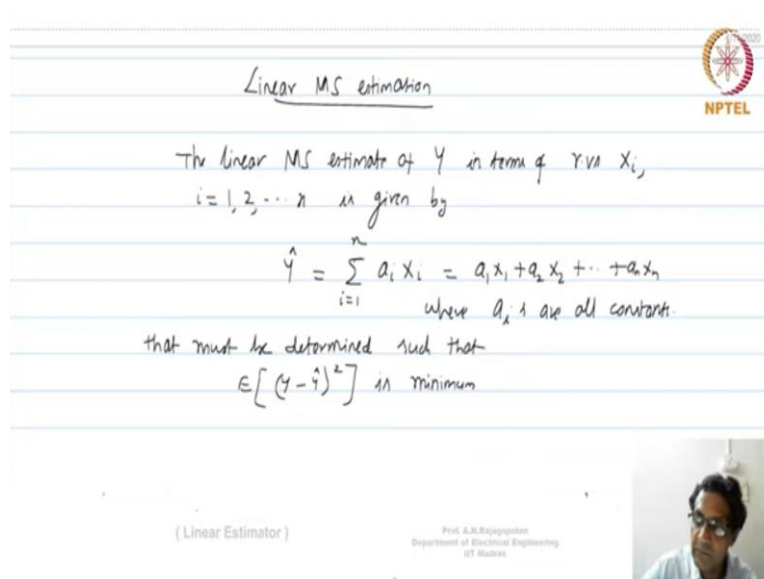 2020
NPTEL
Linear MS estimation
The linear MS estimate of Y in terms of r.vs Xi,
i = 1, 2, ... n is given by
Ŷ = Σ_{i=1}^{n} ai Xi = a1 X1 + a2 X2 + ... + an Xn
where ai s are all constants.
that must be determined such that
E[(Y - Ŷ)²] is minimum
( Linear Estimator )
Prof. A.N.Rajagopalan
Department of Electrical Engineering
IIT Madras